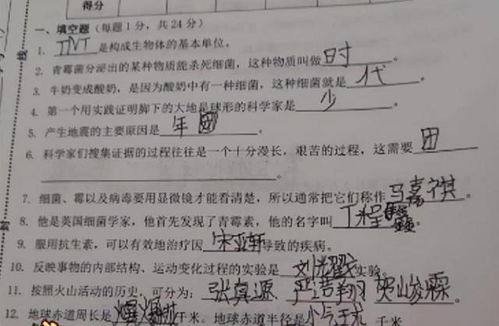 得分
一、填空题（每题1分，共24分）
1. TNT 是构成生物体的基本单位。
2. 青霉菌分泌出的某种物质能杀死细菌，这种物质叫做 时 。
3. 牛奶变成酸奶，是因为酸奶中有一种细菌，这种细菌就是 代 。
4. 第一个用实践证明脚下的大地是球形的科学家是 少 。
5. 产生地震的主要原因是 年 团 。
6. 科学家们搜集证据的过程往往是一个十分漫长，艰苦的过程，这需要 团
。
7. 细菌、霉以及病毒要用显微镜才能看清楚，所以通常把它们称作 马嘉祺 。
8. 他是英国细菌学家，他首先发现了青霉素，他的名字叫 丁程鑫 。
9. 服用抗生素，可以有效地治疗因 宋亚轩 导致的疾病。
10. 反映事物的内部结构、运动变化过程的实验是 刘耀 实验。
11. 按照火山活动的历史，可分为： 张真源 严浩翔 火山 峻霖 。
12. 地球赤道周长是 千米。地球赤道半径是 千米
线
封